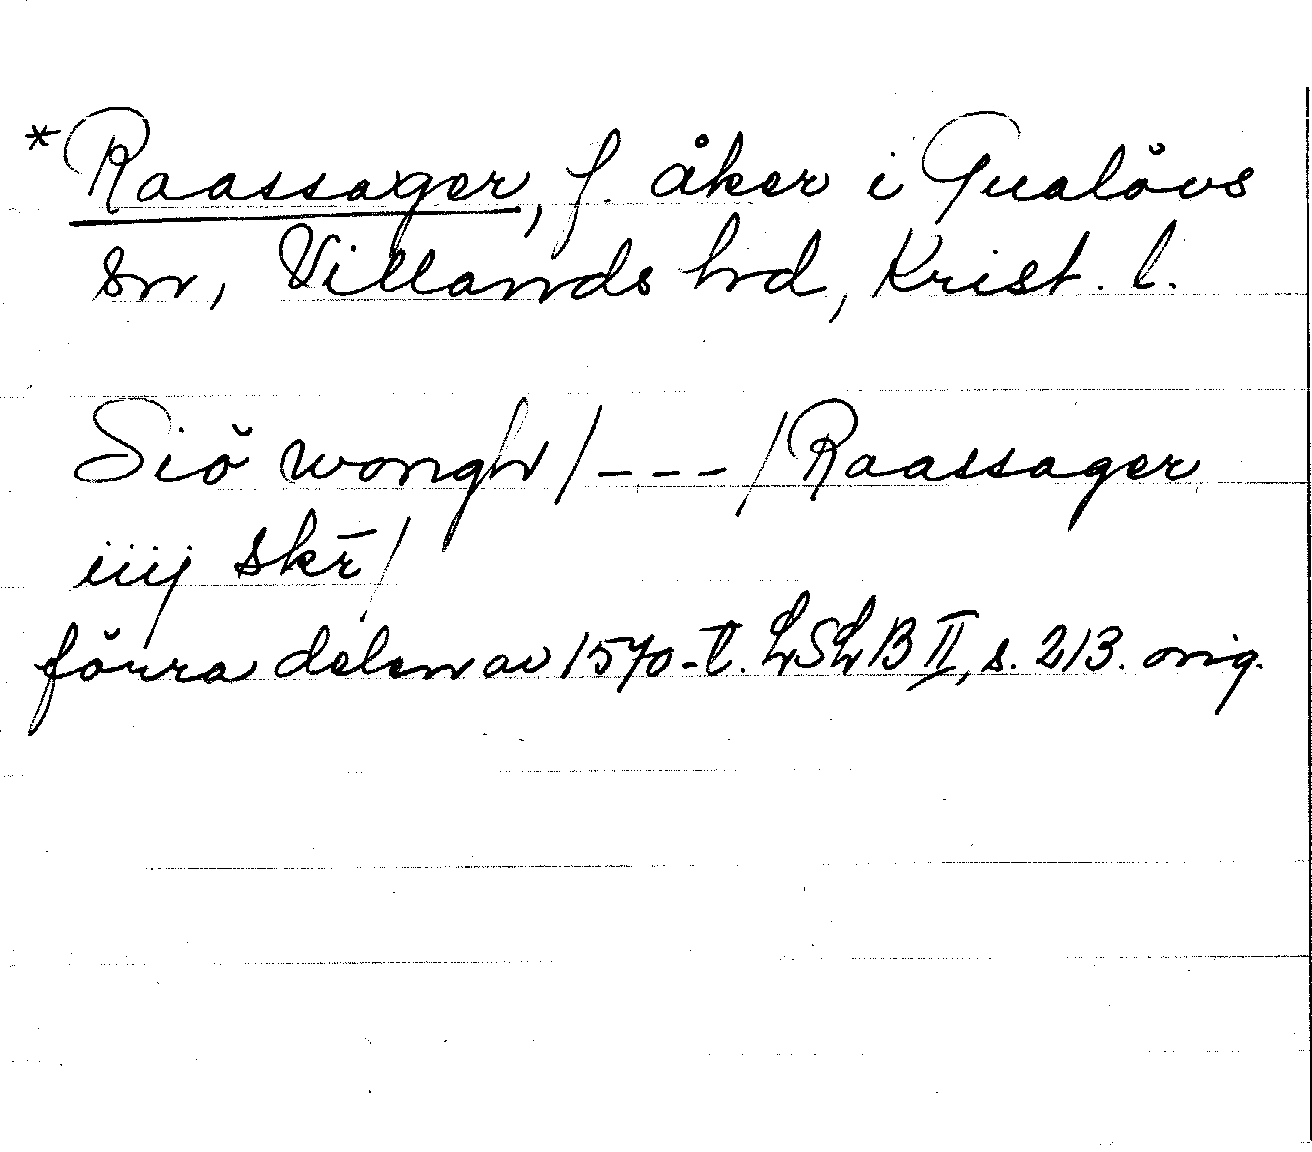 *Raassager, f. åker i Gualövs
sn, Villands hd, Krist. l.
Siö wongh /---/ Raassager
iiij skr̄/
förra delen av 1570-t. LSLB II, s. 213. orig.